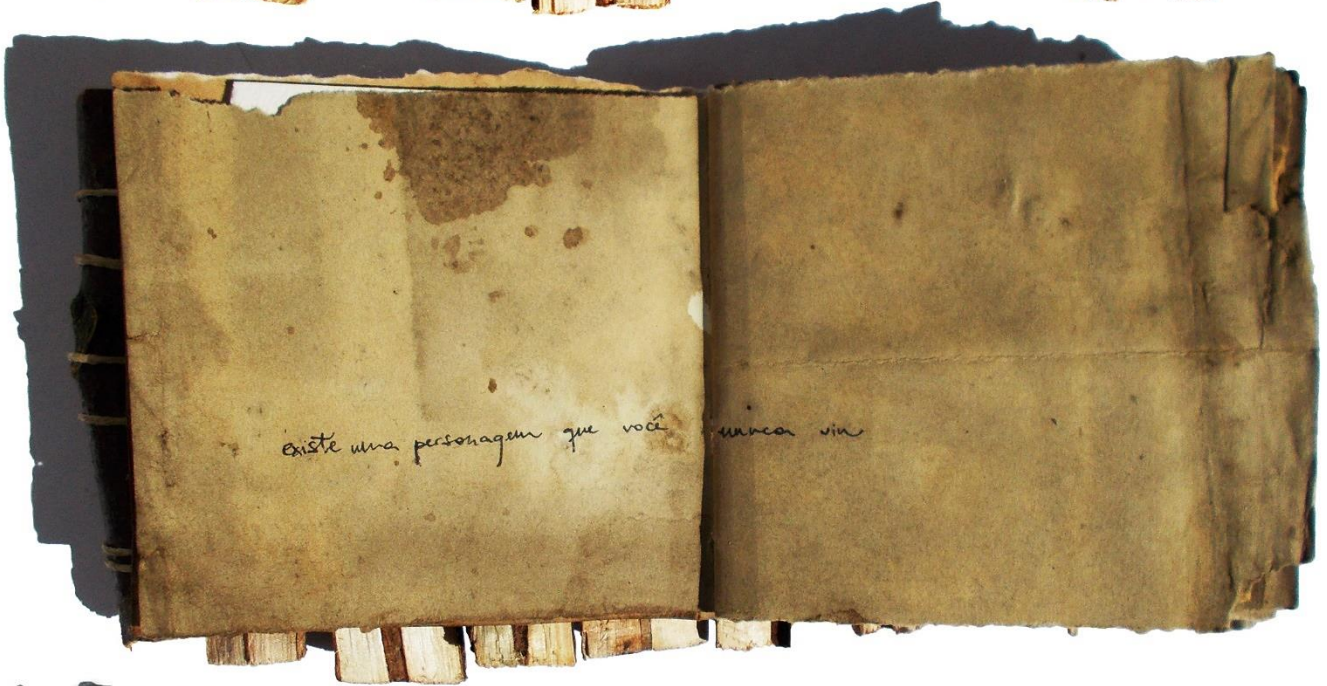 existe uma personagem que você nunca viu